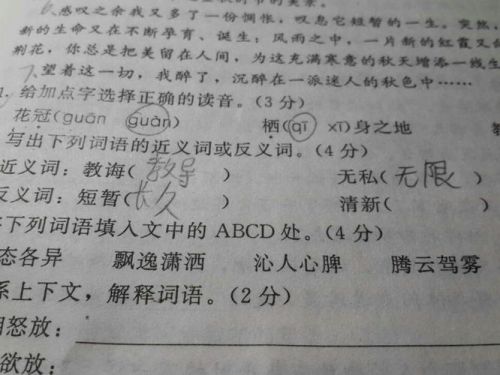 感叹之余我又多了一份惆怅,叹息它短暂的一生。突然,
新的生命又在不断孕育、诞生;风雨之中,一片新的红霞又
荆花,你总是把美留在人间,为这充满寒意的秋天增添一线生
7、望着这一切,我醉了,沉醉在一派迷人的秋色中……
给加点字选择正确的读音。(3分)
花冠(guān guàn) 栖(qī xī)身之地
写出下列词语的近义词或反义词。(4分)
近义词:教诲(教导) 无私(无限)
反义词:短暂(长久) 清新( )
下列词语填入文中的ABCD处。(4分)
态各异 飘逸潇洒 沁人心脾 腾云驾雾
系上下文,解释词语。(2分)
怒放:
欲放: